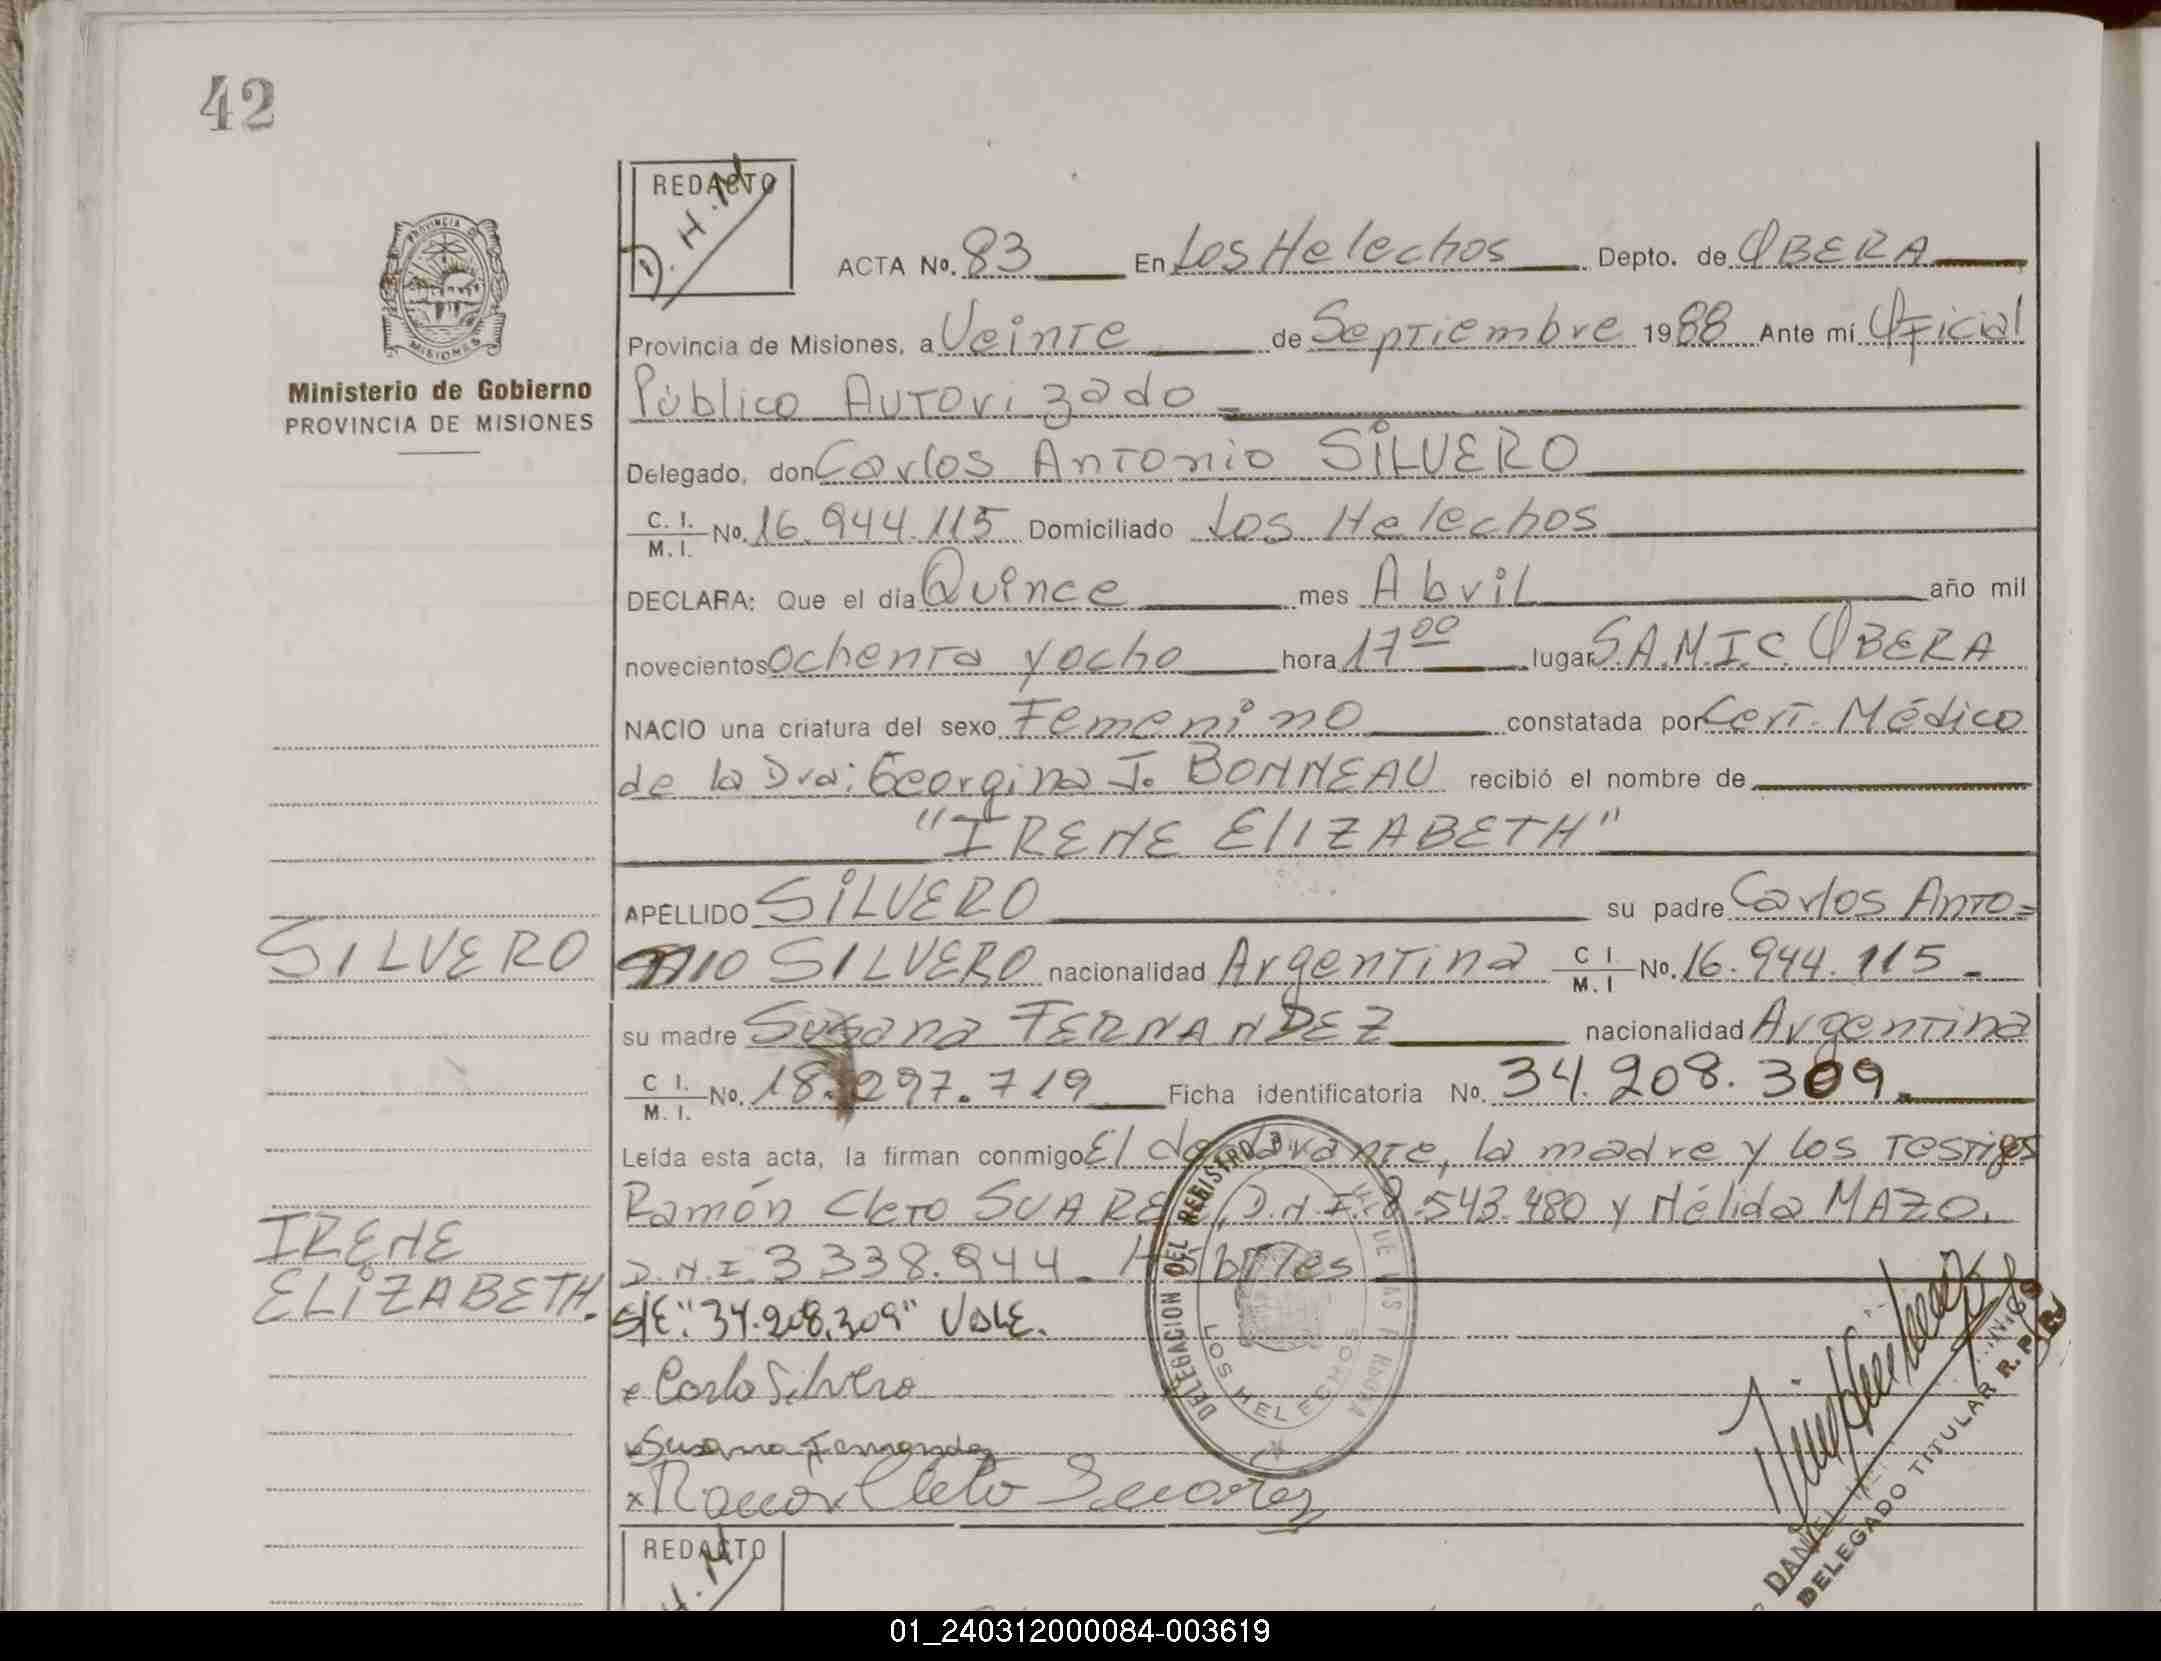 42
REDACTO
D. H. N
PROVINCIA D
MISIONES
Ministerio de Gobierno
PROVINCIA DE MISIONES
ACTA No. 83 En Los Helechos Depto. de OBERA
Provincia de Misiones, a Veinte de Septiembre 1988 Ante mí Oficial
Público Autorizado
Delegado, don Carlos Antonio SILVERO
C. I. / M. I. No. 16.944.115 Domiciliado Los Helechos
DECLARA: Que el día Quince mes Abril año mil
novecientos ochenta y ocho hora 17 00 lugar S.A.M.I.C. OBERA
NACIO una criatura del sexo Femenino constatada por Cert. Médico
de la Dra: Georgina J. BONNEAU recibió el nombre de
"IRENE ELIZABETH"
APELLIDO SILVERO su padre Carlos Anto=
nio SILVERO nacionalidad Argentina C I / M. I No. 16.944.115.-
su madre Susana FERNANDEZ nacionalidad Argentina
C I. / M. I. No. 18.297.719 Ficha identificatoria No. 34.208.309.
Leída esta acta, la firman conmigo El declarante, la madre y los testigos
Ramón Cleto SUAREZ, D.N.I. 8.543.480 y Nélida MAZO.
D.N.I. 3338.944. Hábiles
S/E: "34.208.309" VALE.
x Carlo Silvero
x Susana Fernandez
x Ramon Cleto Suarez
SILVERO
IRENE
ELIZABETH.
DELEGACION DEL REGISTRO P
LOS HELECHOS
DANIEL
DELEGADO TITULAR R. P.
REDACTO
H. N
01_240312000084-003619